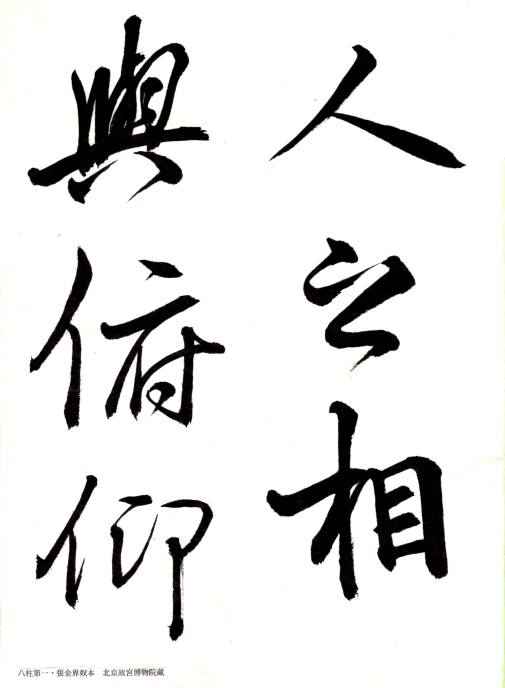 人之相
與俯仰
八柱第一・張金界奴本 北京故宮博物院藏